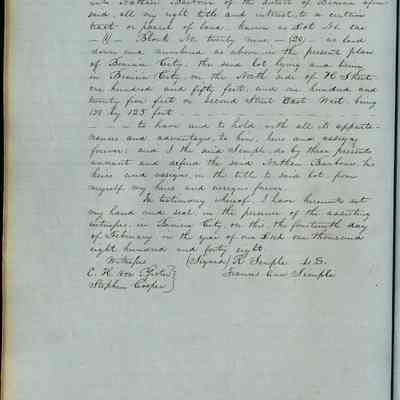 unto Nathan Barbour of the district of Benicia afore
said, all my right title and interest to a certain
tract or parcel of land, known as Lot No. one
— 1 — Block No twenty nine — (29) — as laid
down and numbered as above in the present plan
of Benicia City, the said lot lying and being
in Benicia City on the North side of K Street
one hundred and fifty feet, and one hundred and
twenty five feet on Second Street East West, being
150 by 125 feet
to have and to hold with all its appurte-
nances and advantages, to him, heirs and assigns
forever; and I the said Semple, do by these presents
warrant and defend the said Nathan Barbour, his
heirs and assigns in the title to said lot, from
myself my heirs and assigns forever.
In testimony whereof, I have hereunto set
my hand and seal in the presence of the assisting
witnesses, in Benicia City, on this the fourteenth day
of February in the year of our Lord one thousand
eight hundred and forty eight
Witnesses (Signed) R. Semple
E. H. von Pfister
Stephen Cooper Frances Ann Semple